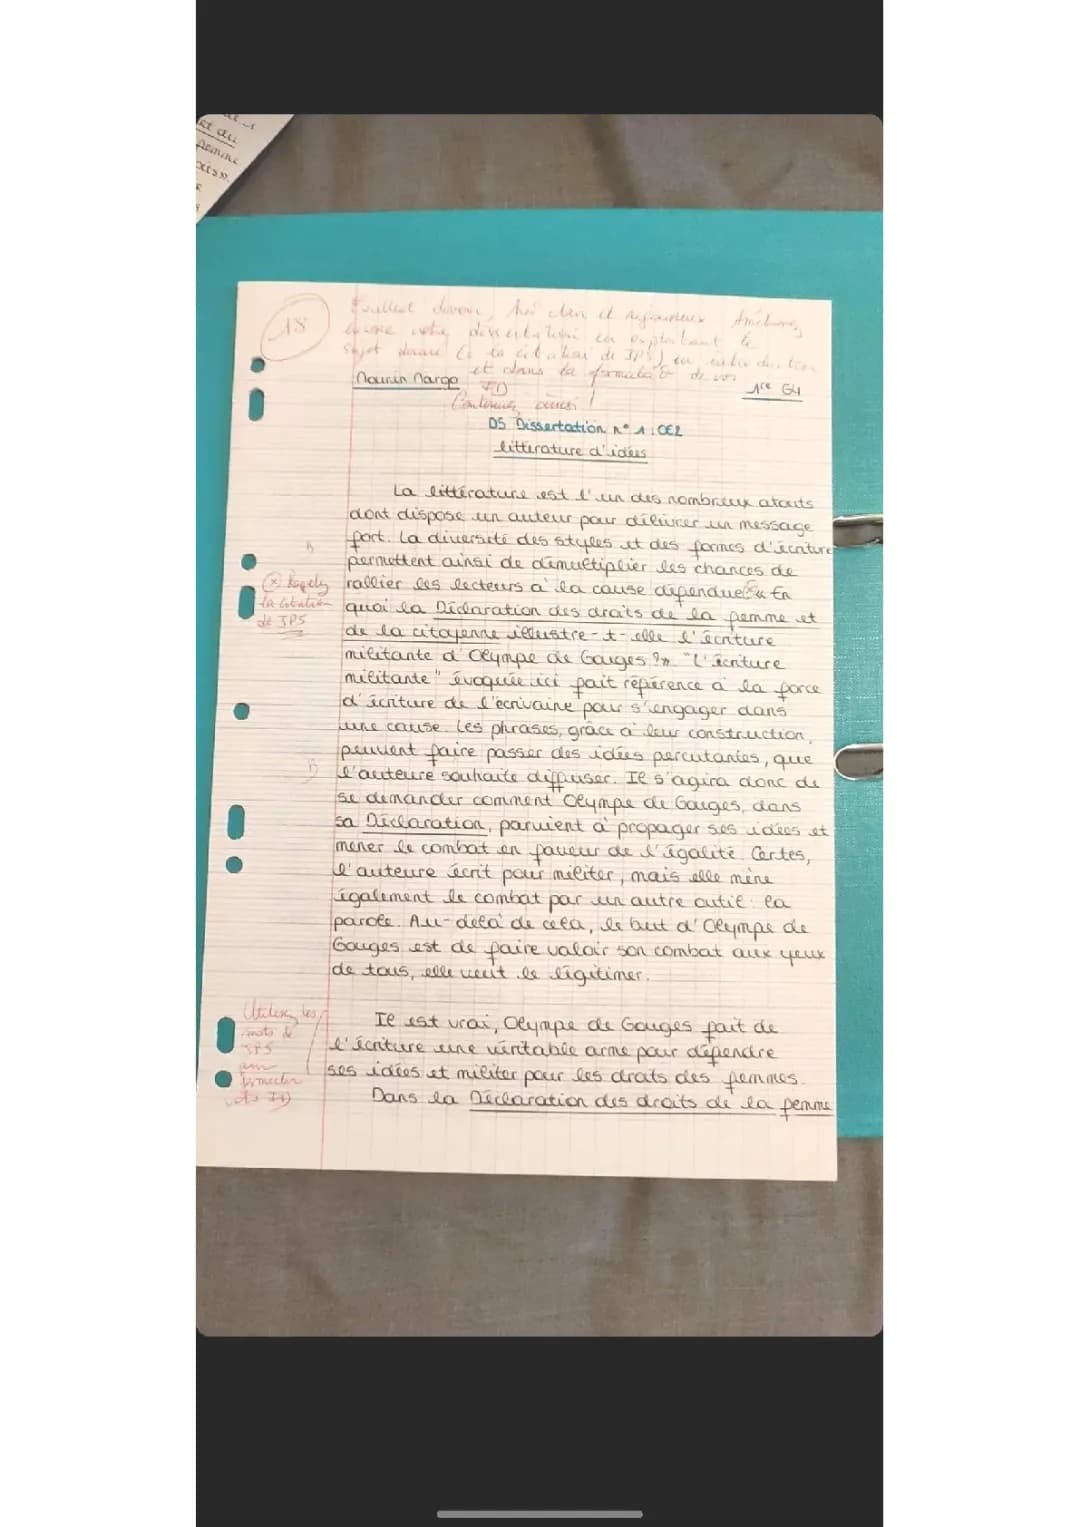 st du
18
Excellent devoir, très clair et rigoureux. Améliorez
encore votre dissertation en exploitant le
sujet donné (ici la citation de JPS) en introduction
et dans la formulation de vos
Mourin Margo
ID
1re G4
Continuez ainsi !
DS Dissertation n°1 : OE2
littérature d'idées
La littérature est l'un des nombreux atouts
dont dispose un auteur pour délivrer un message
fort. La diversité des styles et des formes d'écriture
permettent ainsi de démultiplier les chances de
rallier les lecteurs à la cause défendue. « En
(x) Rappelez
la citation
de JPS
quoi la Déclaration des droits de la femme et
de la citoyenne illustre-t-elle l'écriture
militante d'Olympe de Gouges ? ». "L'écriture
militante" évoquée ici fait référence à la force
d'écriture de l'écrivaine pour s'engager dans
une cause. Les phrases, grâce à leur construction,
peuvent faire passer des idées percutantes, que
l'auteure souhaite diffuser. Il s'agira donc de
se demander comment Olympe de Gouges, dans
sa Déclaration, parvient à propager ses idées et
mener le combat en faveur de l'égalité. Certes,
l'auteure écrit pour militer, mais elle mène
également le combat par un autre outil : la
parole. Au-delà de cela, le but d'Olympe de
Gouges est de faire valoir son combat aux yeux
de tous, elle veut le légitimer.
Utilisez les
mots de
JPS
pour
formuler
vos ID
Il est vrai, Olympe de Gouges fait de
l'écriture une véritable arme pour défendre
ses idées et militer pour les droits des femmes.
Dans la Déclaration des droits de la femme